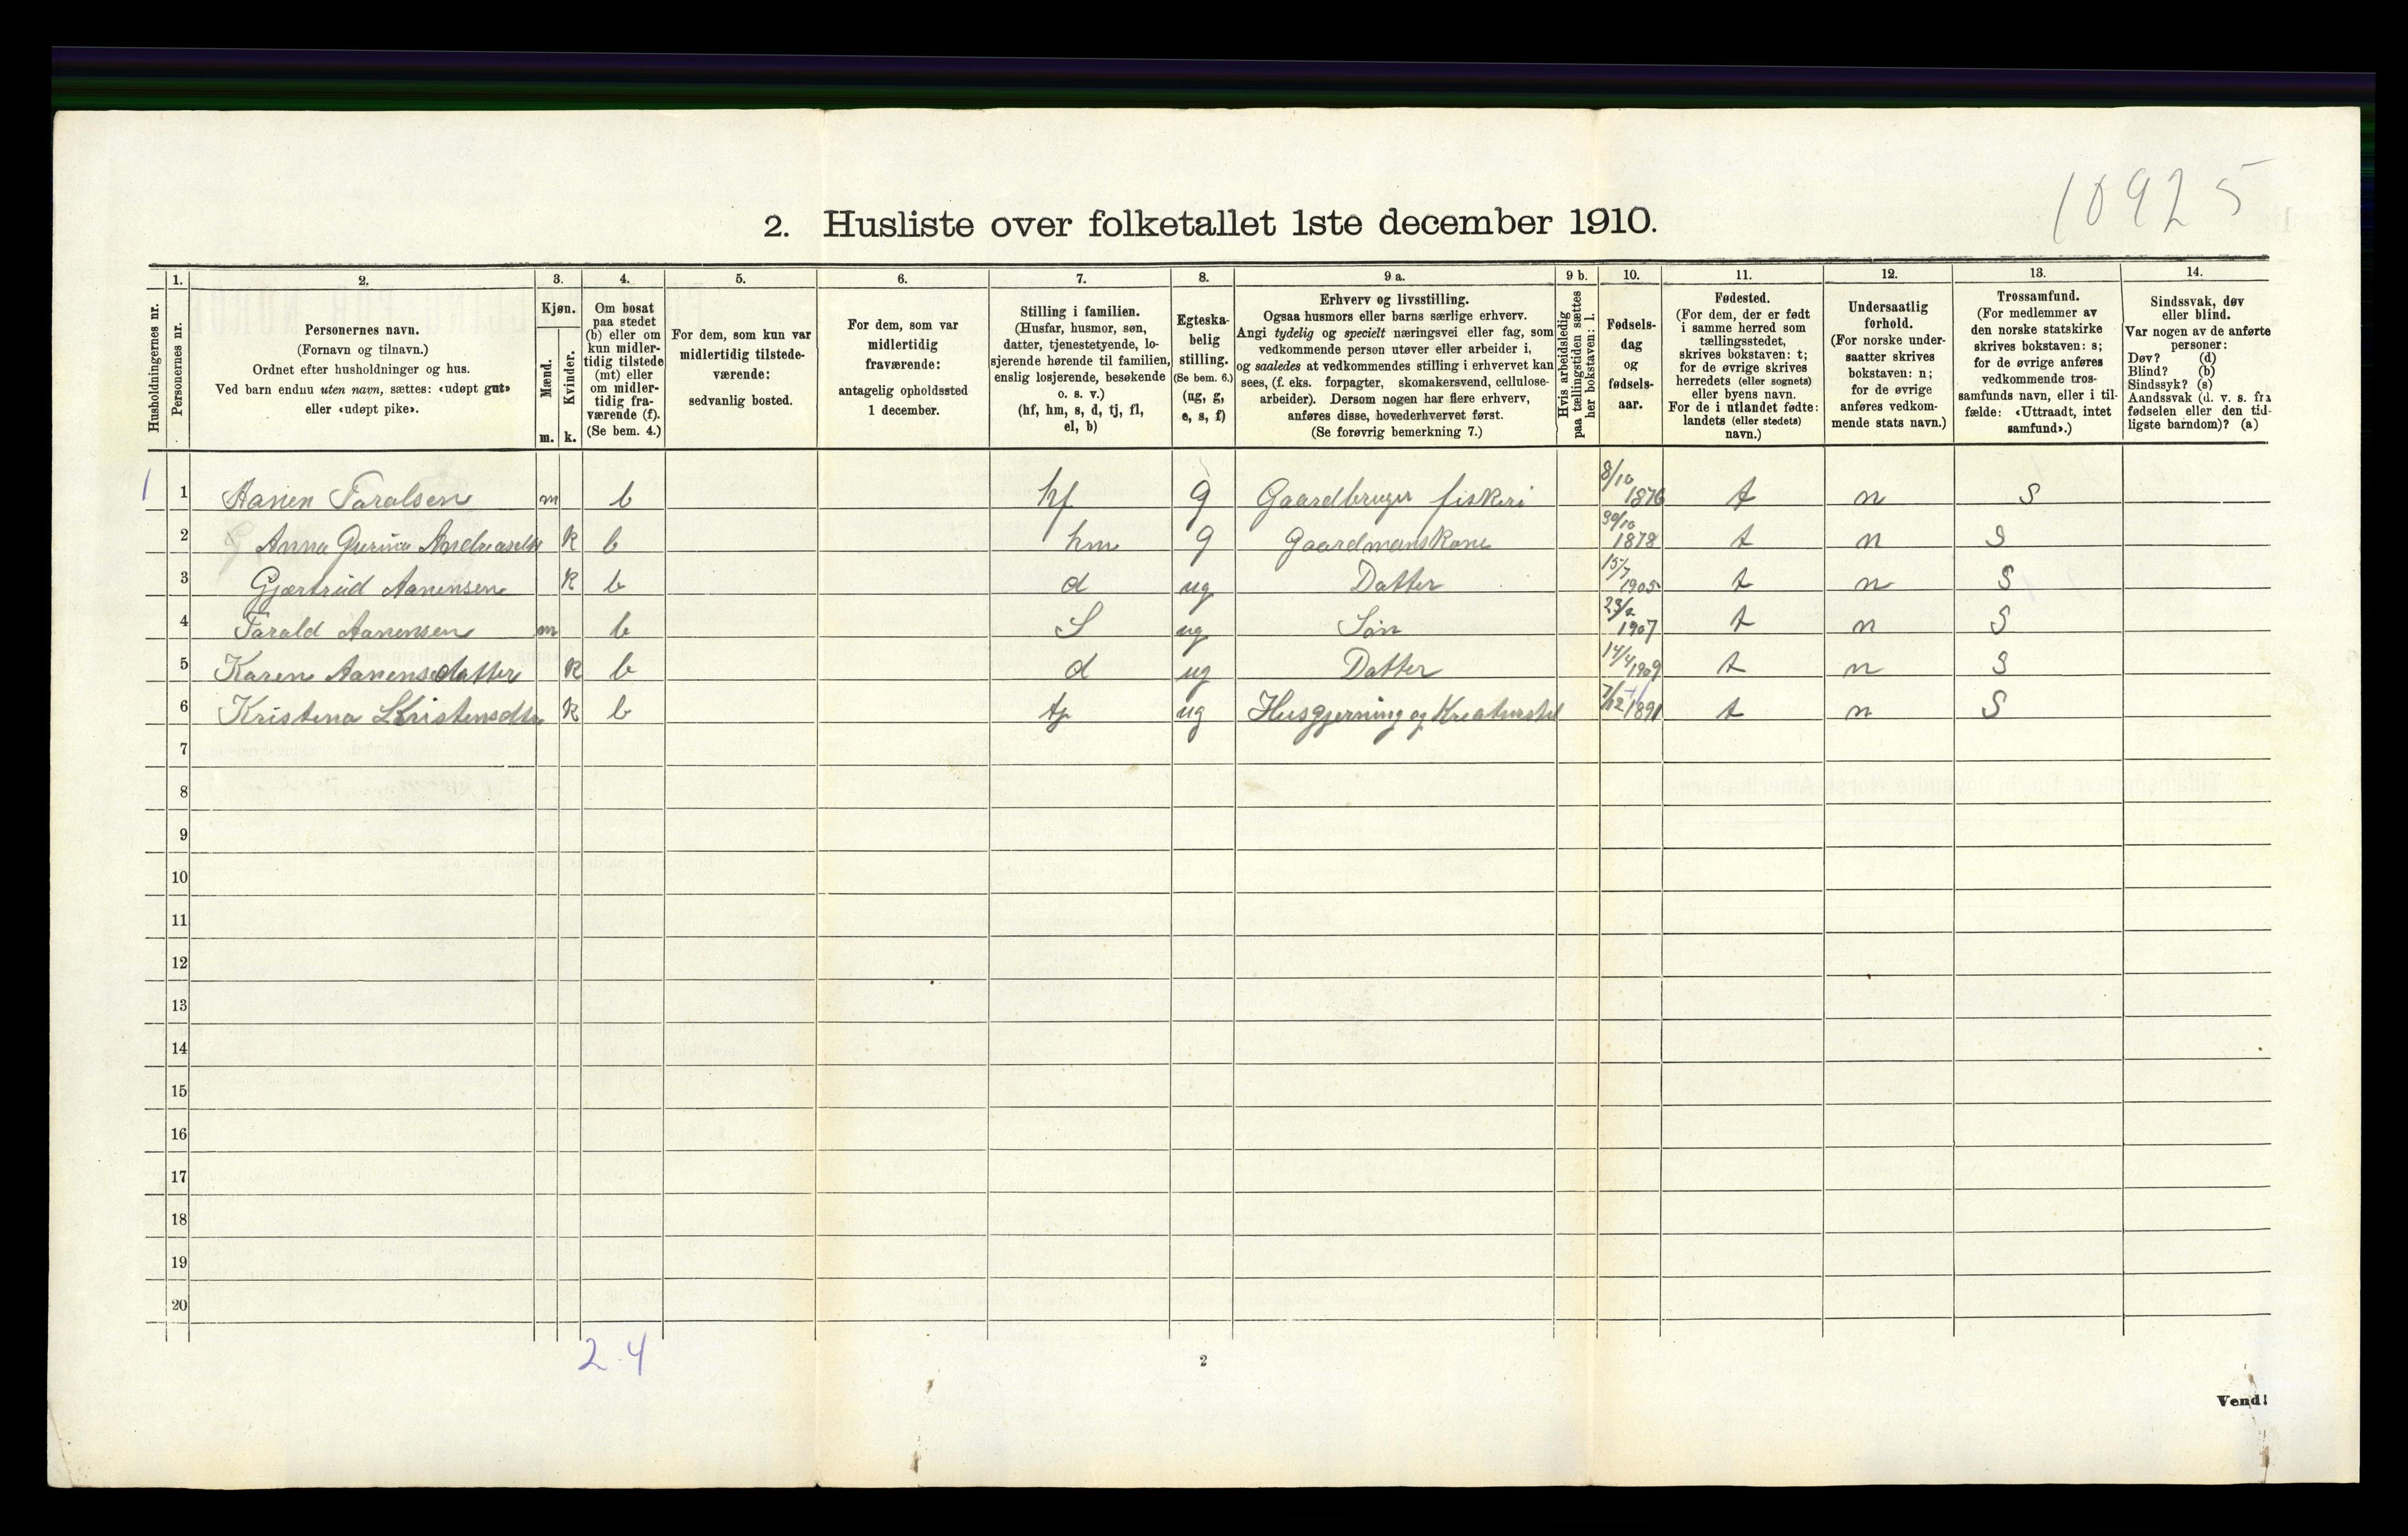 10925
2. Husliste over folketallet 1ste december 1910.
Husholdningernes nr.
1.
Personernes nr.
2.
Personernes navn.
(Fornavn og tilnavn.)
Ordnet efter husholdninger og hus.
Ved barn endnu uten navn, sættes: «udøpt gut»
eller «udøpt pike».
3.
Kjøn.
Mænd.
m.
Kvinder.
k.
4.
Om bosat
paa stedet
(b) eller om
kun midler-
tidig tilstede
(mt) eller
om midler-
tidig fra-
værende (f).
(Se bem. 4.)
5.
For dem, som kun var
midlertidig tilstede-
værende:
sedvanlig bosted.
6.
For dem, som var
midlertidig
fraværende:
antagelig opholdssted
1 december.
7.
Stilling i familien.
(Husfar, husmor, søn,
datter, tjenestetyende, lo-
sjerende hørende til familien,
enslig losjerende, besøkende
o. s. v.)
(hf, hm, s, d, tj, fl,
el, b)
8.
Egteska-
belig
stilling.
(Se bem. 6.)
(ug, g,
e, s, f)
9 a.
Erhverv og livsstilling.
Ogsaa husmors eller barns særlige erhverv.
Angi tydelig og specielt næringsvei eller fag, som
vedkommende person utøver eller arbeider i,
og saaledes at vedkommendes stilling i erhvervet kan
sees, (f. eks. forpagter, skomakersvend, cellulose-
arbeider). Dersom nogen har flere erhverv,
anføres disse, hovederhvervet først.
(Se forøvrig bemerkning 7.)
9 b.
Hvis arbeidsledig
paa tællingstiden sættes
her bokstaven: l.
10.
Fødsels-
dag
og
fødsels-
aar.
11.
Fødested.
(For dem, der er født
i samme herred som
tællingsstedet,
skrives bokstaven: t;
for de øvrige skrives
herredets (eller sognets)
eller byens navn.
For de i utlandet fødte:
landets (eller stedets)
navn.)
12.
Undersaatlig
forhold.
(For norske under-
saatter skrives
bokstaven: n;
for de øvrige
anføres vedkom-
mende stats navn.)
13.
Trossamfund.
(For medlemmer av
den norske statskirke
skrives bokstaven: s;
for de øvrige anføres
vedkommende tros-
samfunds navn, eller i til-
fælde: «Uttraadt, intet
samfund».)
14.
Sindssvak, døv
eller blind.
Var nogen av de anførte
personer:
Døv? (d)
Blind? (b)
Sindssyk? (s)
Aandssvak (d. v. s. fra
fødselen eller den tid-
ligste barndom)? (a)
1 1 Aanen Taralsen m b hf g Gaardbruger fiskeri 8/10 1876 t n S
2 Anna Gurina Andreasdtr K b hm g Gaardmanskone 30/10 1878 t n S
3 Gjærtrud Aanensen K b d ug Datter 15/7 1905 t n S
4 Tarald Aanensen m b S ug Søn 23/2 1907 t n S
5 Karen Aanensdatter K b d ug Datter 14/4 1909 t n S
6 Kristena Kristensdtr K b tj ug Husgjerning og Kreaturstel 7/12 1891 t n S
7
8
9
10
11
12
13
14
15
16
17
18
19
20
2.4
2
Vend!